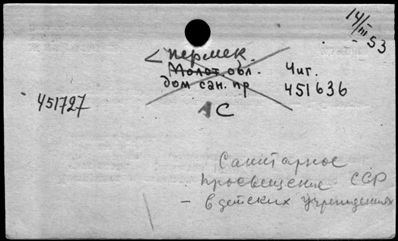 14/III 53
< пермск.
Молот. обл. Чит.
дом сан. пр 451636
451727
АС
Санитарное
просвещение СССР
– в детских учреждениях